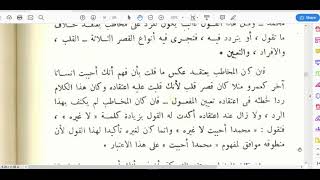 ما تقول ، أو يتردد فيه ، فتجرى فيه أنواع القصر الثلاثة ــ القلب ،
والافراد ، والتعيين •
فان كان المخاطب يعتقد عكس ما قلت بأن فهم أنك أحببت انسانا
آخر كعمرو مثلا كان قصر قلب لأنك قلبت عليه اعتقاده وكان هذا الكلام
ردا لخطئه فى اعتقاده تعيين المفعول ــ فان كان المخاطب لم يكتف بهذا
الرد ، ولا زال عند اعتقاده أكدت له القول بزيادة كلمة « لا غيره » ،
فتقول : « محمدا أحببت لا غيره » وانما كان لغيره تأكيدا لهذا القول لأن
منطوقه موافق لمفهوم « محمدا أحببت » على هذا الاعتبار •